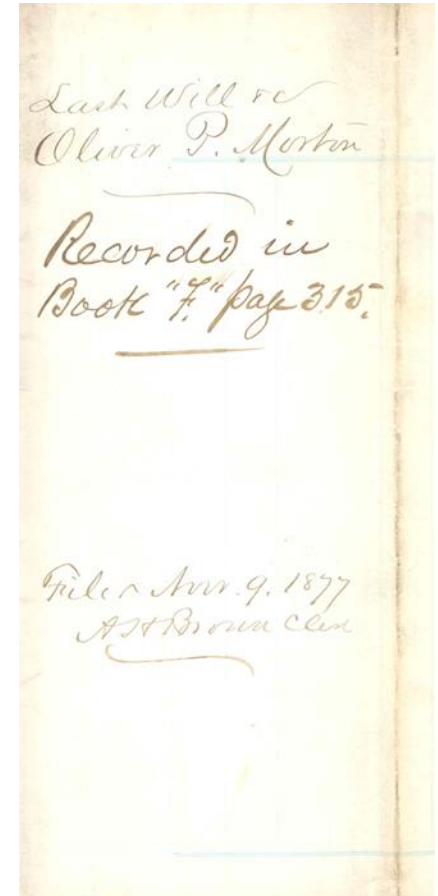 Last Will &c
Oliver P. Morton
Recorded in
Book "F." page 315.
Filed Nov. 9. 1877
A H Brown Clerk